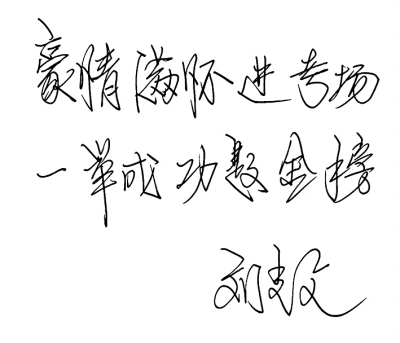 豪情满怀进考场
一举成功题金榜
刘